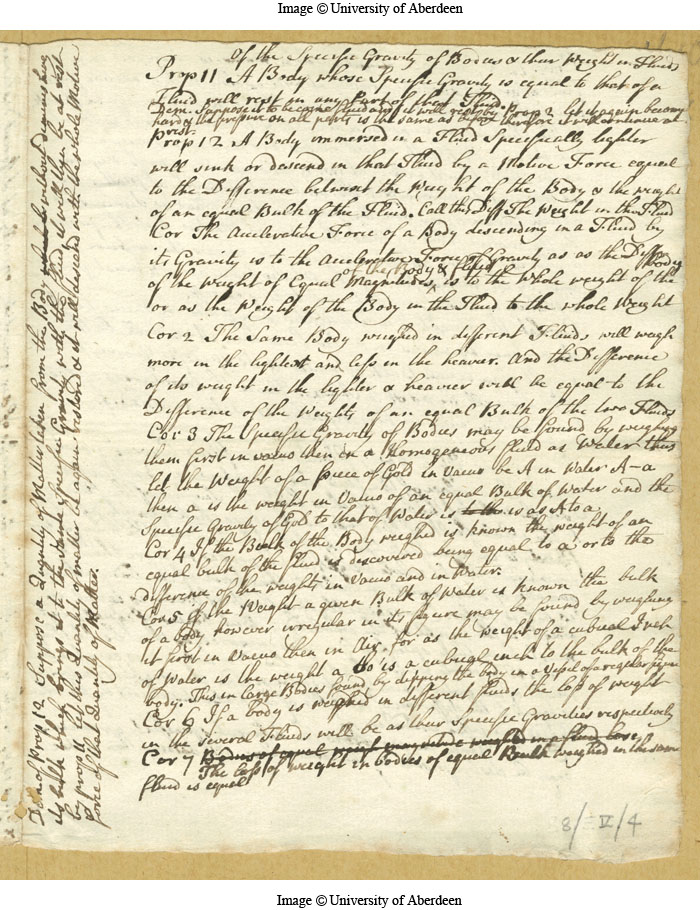 Image © University of Aberdeen
Of the Specific Gravity of Bodies & their Weight in Fluids
Prop 11 A Body whose Specific Gravity is equal to that of a
Fluid will rest on any Part of that Fluid.
Dem. Suppose it to become fluid and it will rest by Prop 2 let it again become
hard & the pressure on all parts is the same as before therefore it will continue at
rest.
Prop 12 A Body immersed in a Fluid Specifically lighter
will sink or descend in that Fluid by a Motive Force equal
to the Difference betwixt the Weight of the Body & the weight
of an equal Bulk of the Fluid. Call this Diff The Weight in the Fluid
Cor The Accelerative Force of a Body descending in a Fluid by
its Gravity is to the Accelerative Force of Gravity as as the Diff
of the Weight of Equal Magnitudes of the Body & fluid is to the whole weight of the Body
or as the Weight of the Body in the Fluid to the whole Weight
Cor 2 The Same Body weighed in different Fluids will weigh
more in the lightest and less in the heavier. And the Difference
of its weight in the lighter & heavier will be equal to the
Difference of the Weights of an equal Bulk of the two Fluids
Cor 3 The Specific Gravity of Bodies may be found by weighing
them first in vacuo then in a homogeneous fluid as Water thus
let the Weight of a Piece of Gold in Vacuo be A in Water A-a
then a is the weight in Vacuo of an equal Bulk of Water and the
Specific Gravity of Gold to that of Water is to the is as A to a
Cor 4 If the Bulk of the Body weighed is known the weight of an
equal bulk of the fluid is discovered being equal to a or to the
difference of the weights in Vacuo and in Water.
Cor 5 If the Weight a given Bulk of Water is known the bulk
of a body however irregular in its figure may be found by weighing
it first in Vacuo then in Air. for as the weight of a cubical Inch
of Water is the weight a so is a cubical inch to the bulk of the
body. This in large Bodies found by dipping the body in a Vessel of a regular figure
Cor 6 If a body is weighed in different fluids the loss of weight
in the several Fluids will be as their Specific Gravities respectively
Cor 7 Bodies of equal weight weighed in a fluid lose
The loss of weight in bodies of equal Bulk weighed in the same
fluid is equal
8/IV/4
Dem of Prop 12 Suppose a Quantity of Matter taken from the Body without diminishing
its bulk which brings it to the same Specific Gravity with the fluid, it will then be at rest
by prop 11 let this Quantity of matter be again restored & it will descend with the whole Motive
force of this Quantity of Matter.
Image © University of Aberdeen